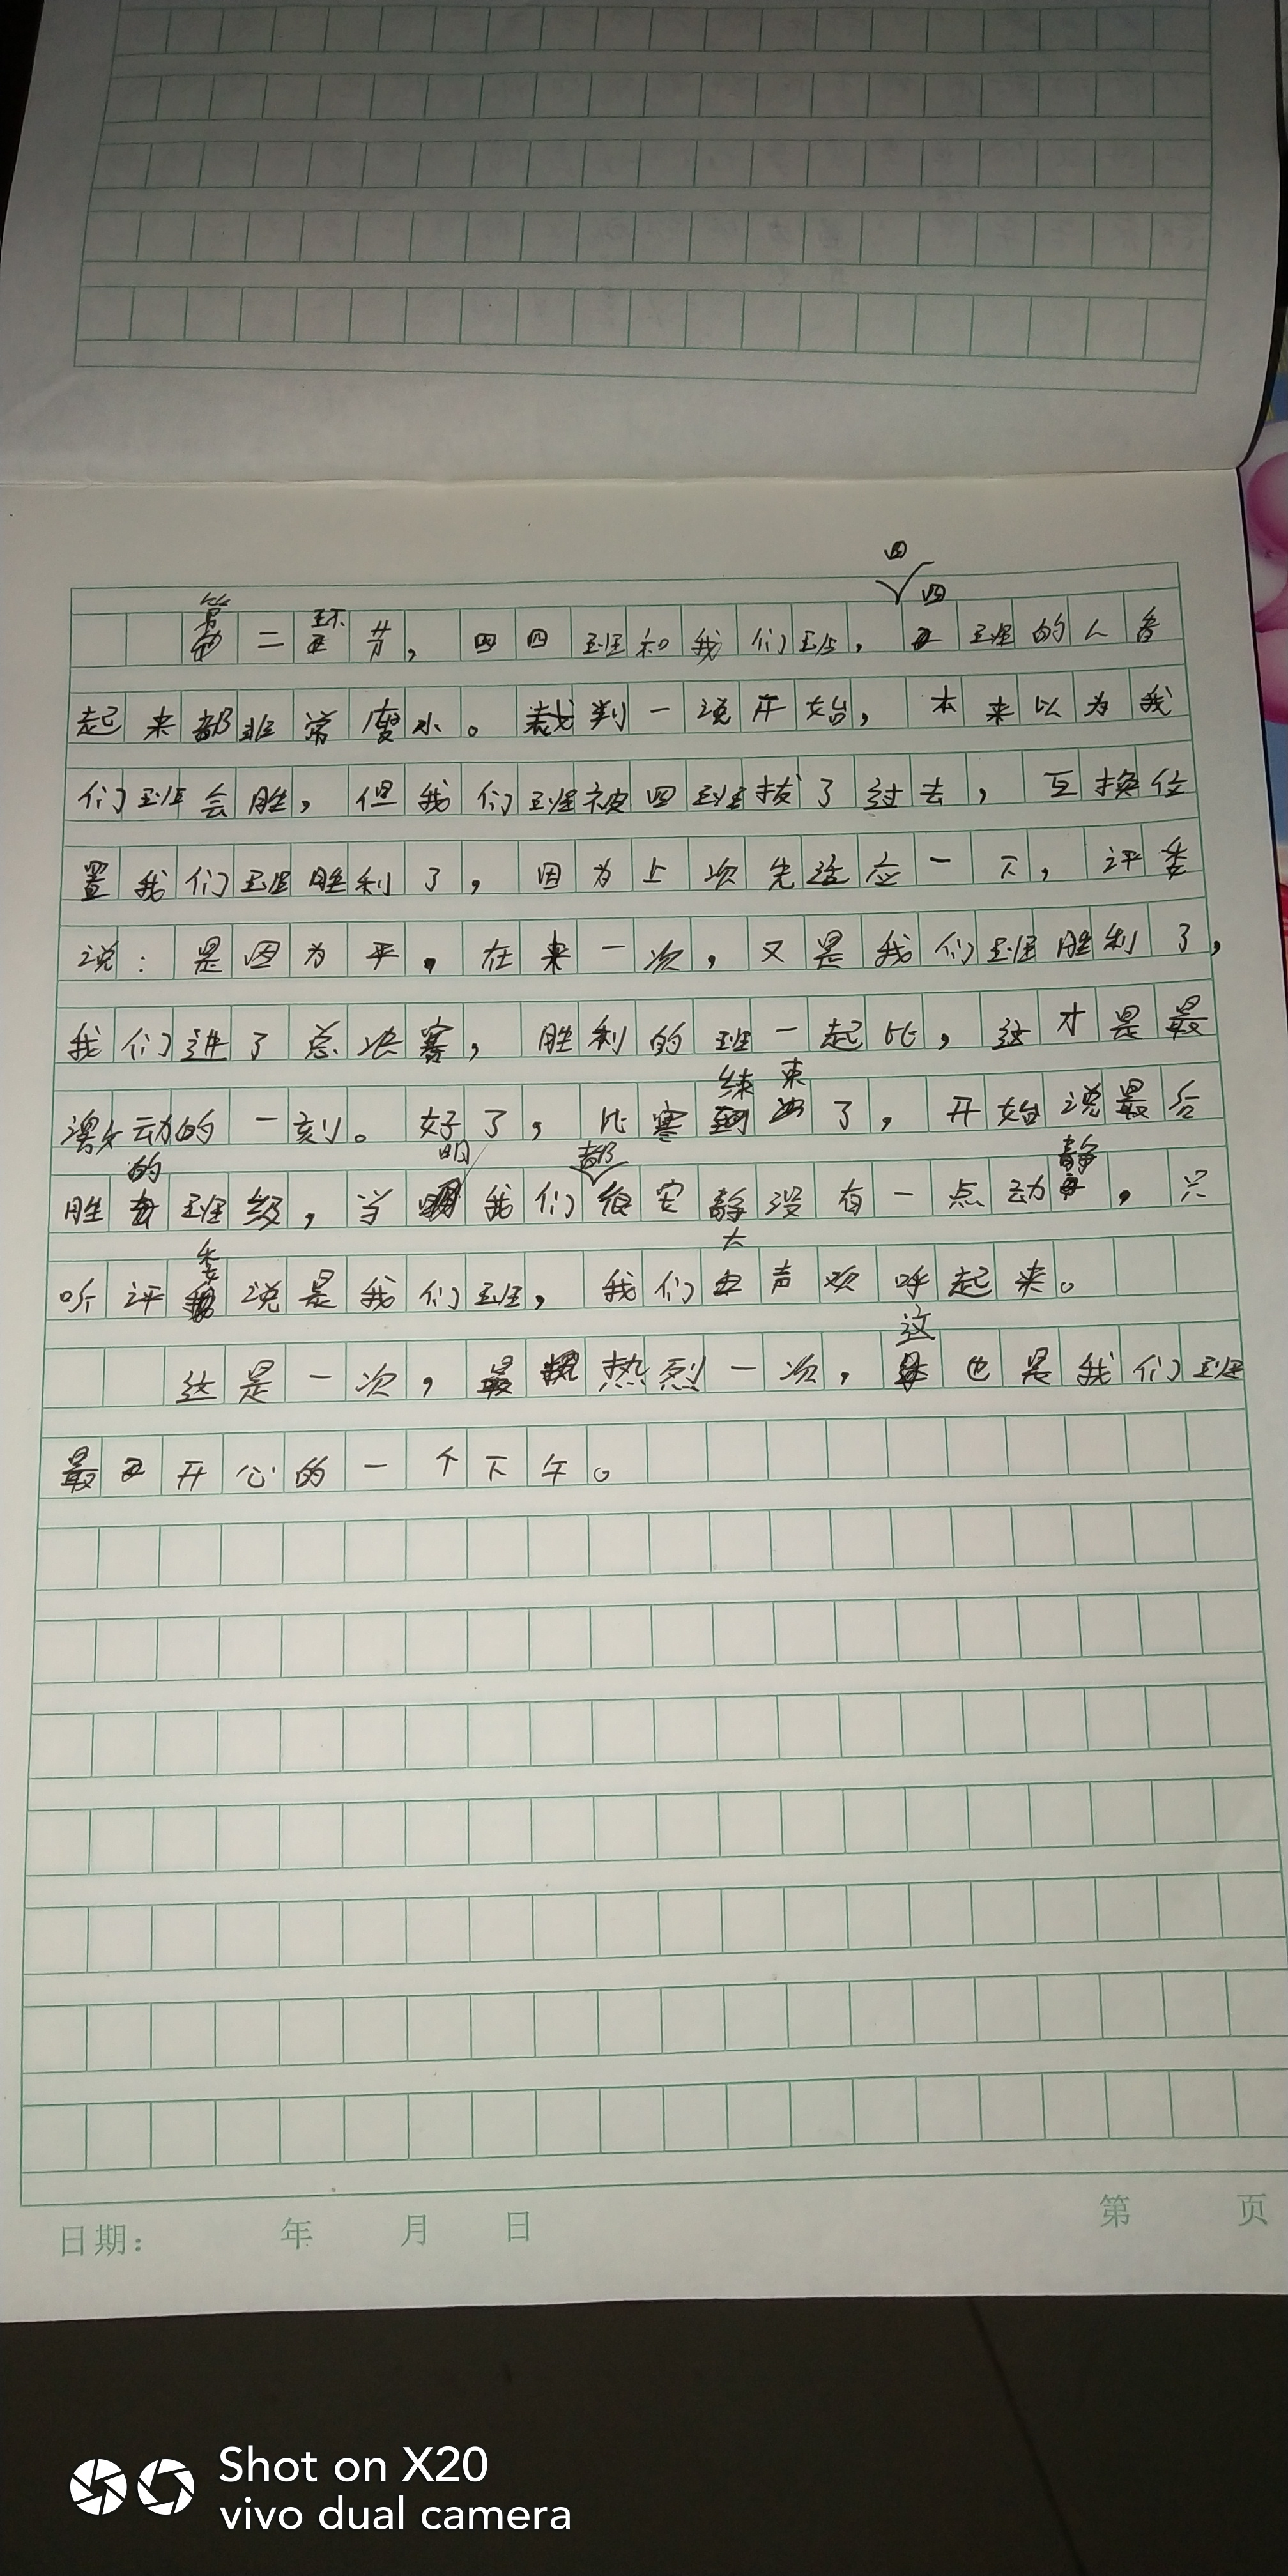 第二环节，四四班和我们班，四四班的人看
起来都非常瘦小。裁判一说开始，本来以为我
们班会胜，但我们班被四班拔了过去，互换位
置我们班胜利了，因为上次先适应一下，评委
说：是因为平，在来一次，又是我们班胜利了，
我们进了总决赛，胜利的班一起比，这才是最
激动的一刻。好了，比赛结束了，开始说最后
胜的班级，当明我们都很安静没有一点动静，只
听评委说是我们班，我们大声欢呼起来。
这是一次，最热烈一次，这也是我们班
最开心的一个下午。
日期： 年 月 日 第 页
Shot on X20
vivo dual camera